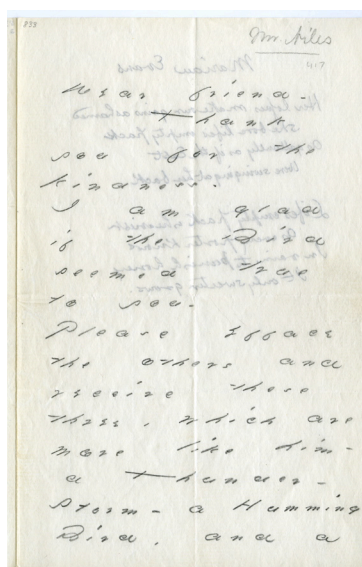 Mr Niles
Dear friend-
Thank
you for the
kindness.
I am glad
if the Bird
seemed true
to you.
Please efface
the others and
receive these
three, which are
more like him-
a Thunder-
storm - a Humming
Bird, and a